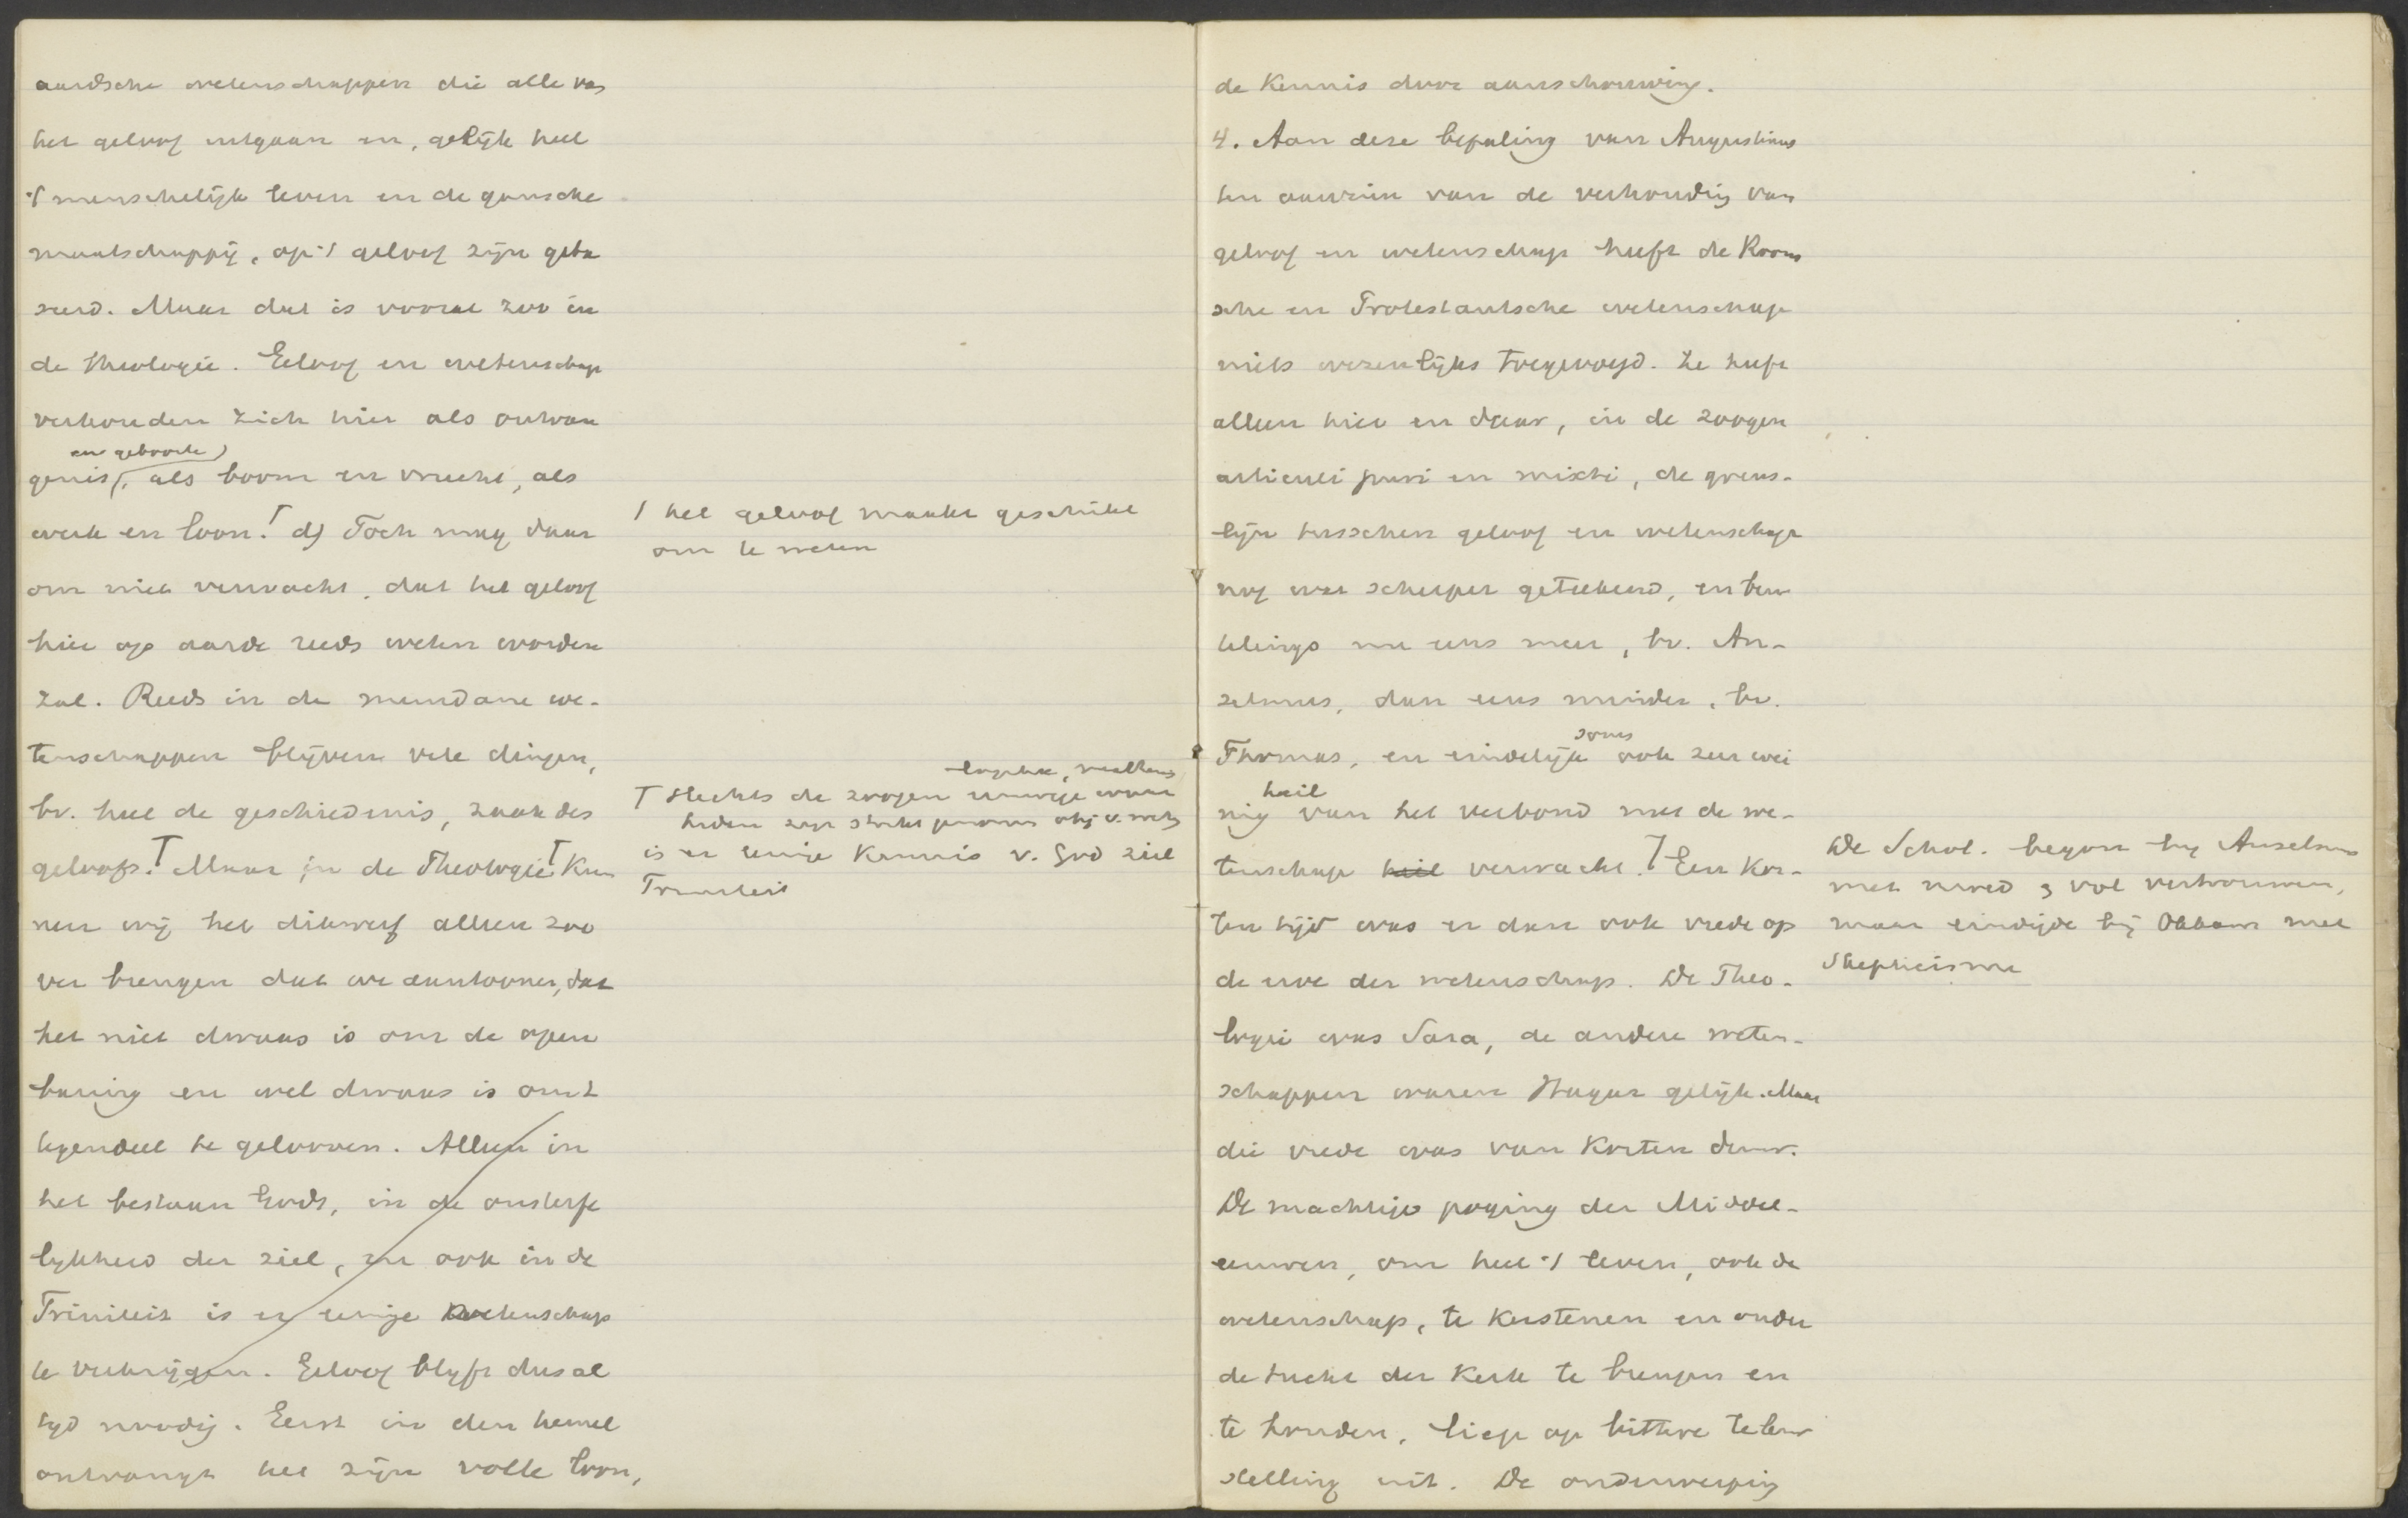 aardsche wetenschappen die alle van
het geloof uitgaan en, gelijk heel
't menschelijk leven en de gansche
maatschappij, op 't geloof zijn geba
seerd. Maar dat is vooral zoo in
de theologie. Geloof en wetenschap
verhouden zich hier als ontvan
en geboorte
genis, als boom en vrucht, als
werk en loon. d) Toch mag daar
om niet verwacht, dat het geloof
hier op aarde reeds weten worden
zal. Reeds in de mundane we-
tenschappen blijven vele dingen,
bv. heel de geschiedenis, zaak des
geloofs. Maar in de Theologie kun
nen wij het dikwerf alleen zoo
ver brengen dat we aantoonen, dat
het niet dwaas is om de open
baring en wel dwaas is om 't
tegendeel te gelooven. Alleen in
het bestaan Gods, in de onsterfe
lijkheid der ziel, en ook in de
Triniteit is er eenige wetenschap
te verkrijgen. Geloof blijft dus al
tijd noodig. Eerst in den hemel
ontvangt het zijn volle loon,
het geloof maakt geschikt
om te weten
Slechts de zoogen eeuwige waar
heden zijn obj v. wets
is er eenige kennis v. God ziel
Triniteit
de kennis door aanschouwing.
4. Aan deze bepaling van Augustinus
ten aanzien van de verhouding van
geloof en wetenschap heeft de Room
sche en Protestantsche wetenschap
niets wezenlijks toegevoegd. Ze heeft
alleen hier en daar, in de zoogen
articuli puri en mixti, de grens-
lijn tusschen geloof en wetenschap
nog wat scherper geteekend, en beur
telings nu eens meer, bv. An-
selmus, dan eens minder, bv.
soms
Thomas, en eindelijk ook zeer wei
heil
nig van het verbond met de we-
tenschap heil verwacht. Een kor-
ten tijd was er dan ook vrede op
de erve der wetenschap. De Theo-
logie was Sara, de andere weten-
schappen waren Hagar gelijk. Maar
die vrede was van korten duur.
De machtige poging der Middel-
eeuwen, om heel 't leven, ook de
wetenschap, te kerstenen en onder
de tucht der kerk te brengen en
te houden, liep op bittere teleur
stelling uit. De onderwerping
De Schol. begon bij Anselmus
met moed & vol vertrouwen,
maar eindigde bij Okkam met
Skepticisme